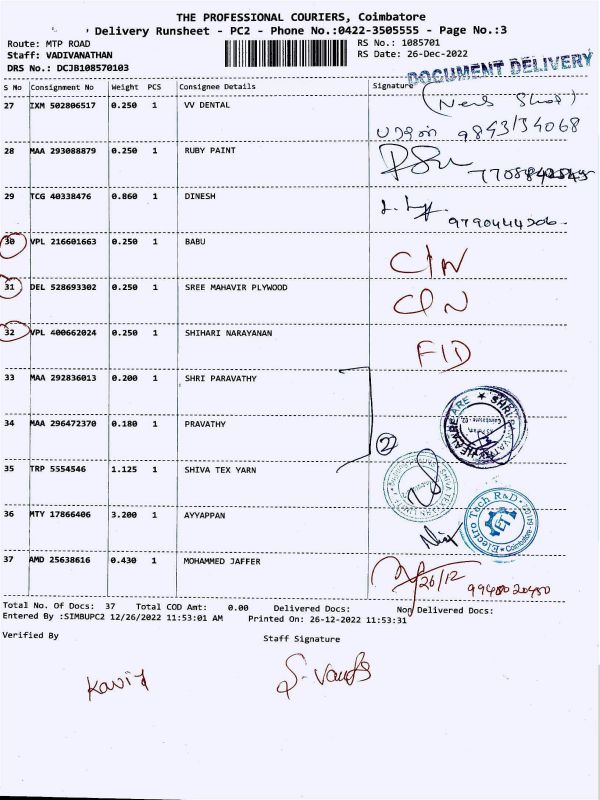 THE PROFESSIONAL COURIERS, Coimbatore
Delivery Runsheet - PC2 - Phone No.:0422-3505555 - Page No.:3
Route: MTP ROAD RS No.: 1085701
Staff: VADIVANATHAN RS Date: 26-Dec-2022
DRS No.: DCJB108570103
DOCUMENT DELIVERY
S No Consignment No Weight PCS Consignee Details Signature
27 IXM 502806517 0.250 1 VV DENTAL
98431 34068
28 MAA 293088879 0.250 1 RUBY PAINT
29 TCG 40338476 0.860 1 DINESH
9790444206
30 VPL 216601663 0.250 1 BABU
C/N
31 DEL 528693302 0.250 1 SREE MAHAVIR PLYWOOD
C/N
32 VPL 400662024 0.250 1 SHIHARI NARAYANAN
F/D
33 MAA 292836013 0.200 1 SHRI PARAVATHY
34 MAA 296472370 0.180 1 PRAVATHY
2
35 TRP 5554546 1.125 1 SHIVA TEX YARN
36 MTY 17866406 3.200 1 AYYAPPAN
Electro Tech R&D
37 AMD 25638616 0.430 1 MOHAMMED JAFFER
26/12 9948020480
Total No. Of Docs: 37 Total COD Amt: 0.00 Delivered Docs: Non Delivered Docs:
Entered By :SIMBUPC2 12/26/2022 11:53:01 AM Printed On: 26-12-2022 11:53:31
Verified By Staff Signature